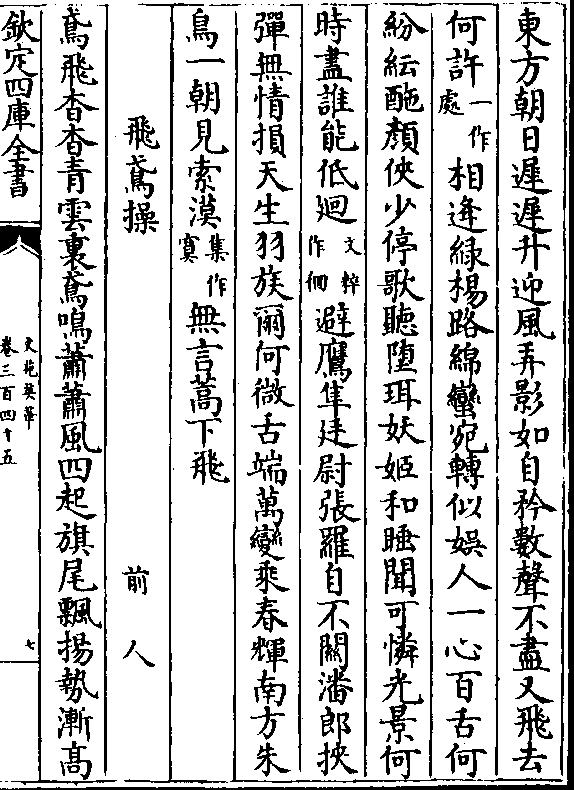 東方朝日遲遲升迎風弄影如自矜數聲不盡又飛去
何許一作處相逢緑楊路綿蠻宛轉似娱人一心百舌何
紛紜酡顏俠少停歌聽墮珥妖姬和睡聞可憐光景何
時盡誰能低廻文粹作佪避鷹隼廷尉張羅自不關潘郎挾
彈無情損天生羽族爾何微舌端萬變乘春輝南方朱
鳥一朝見索漠集作寞無言蒿下飛
飛鳶操 前人
鳶飛杳杳青雲裏鳶鳴蕭蕭風四起旗尾飄揚勢漸高
欽定四庫全書
文苑英華
卷三百四十五
七